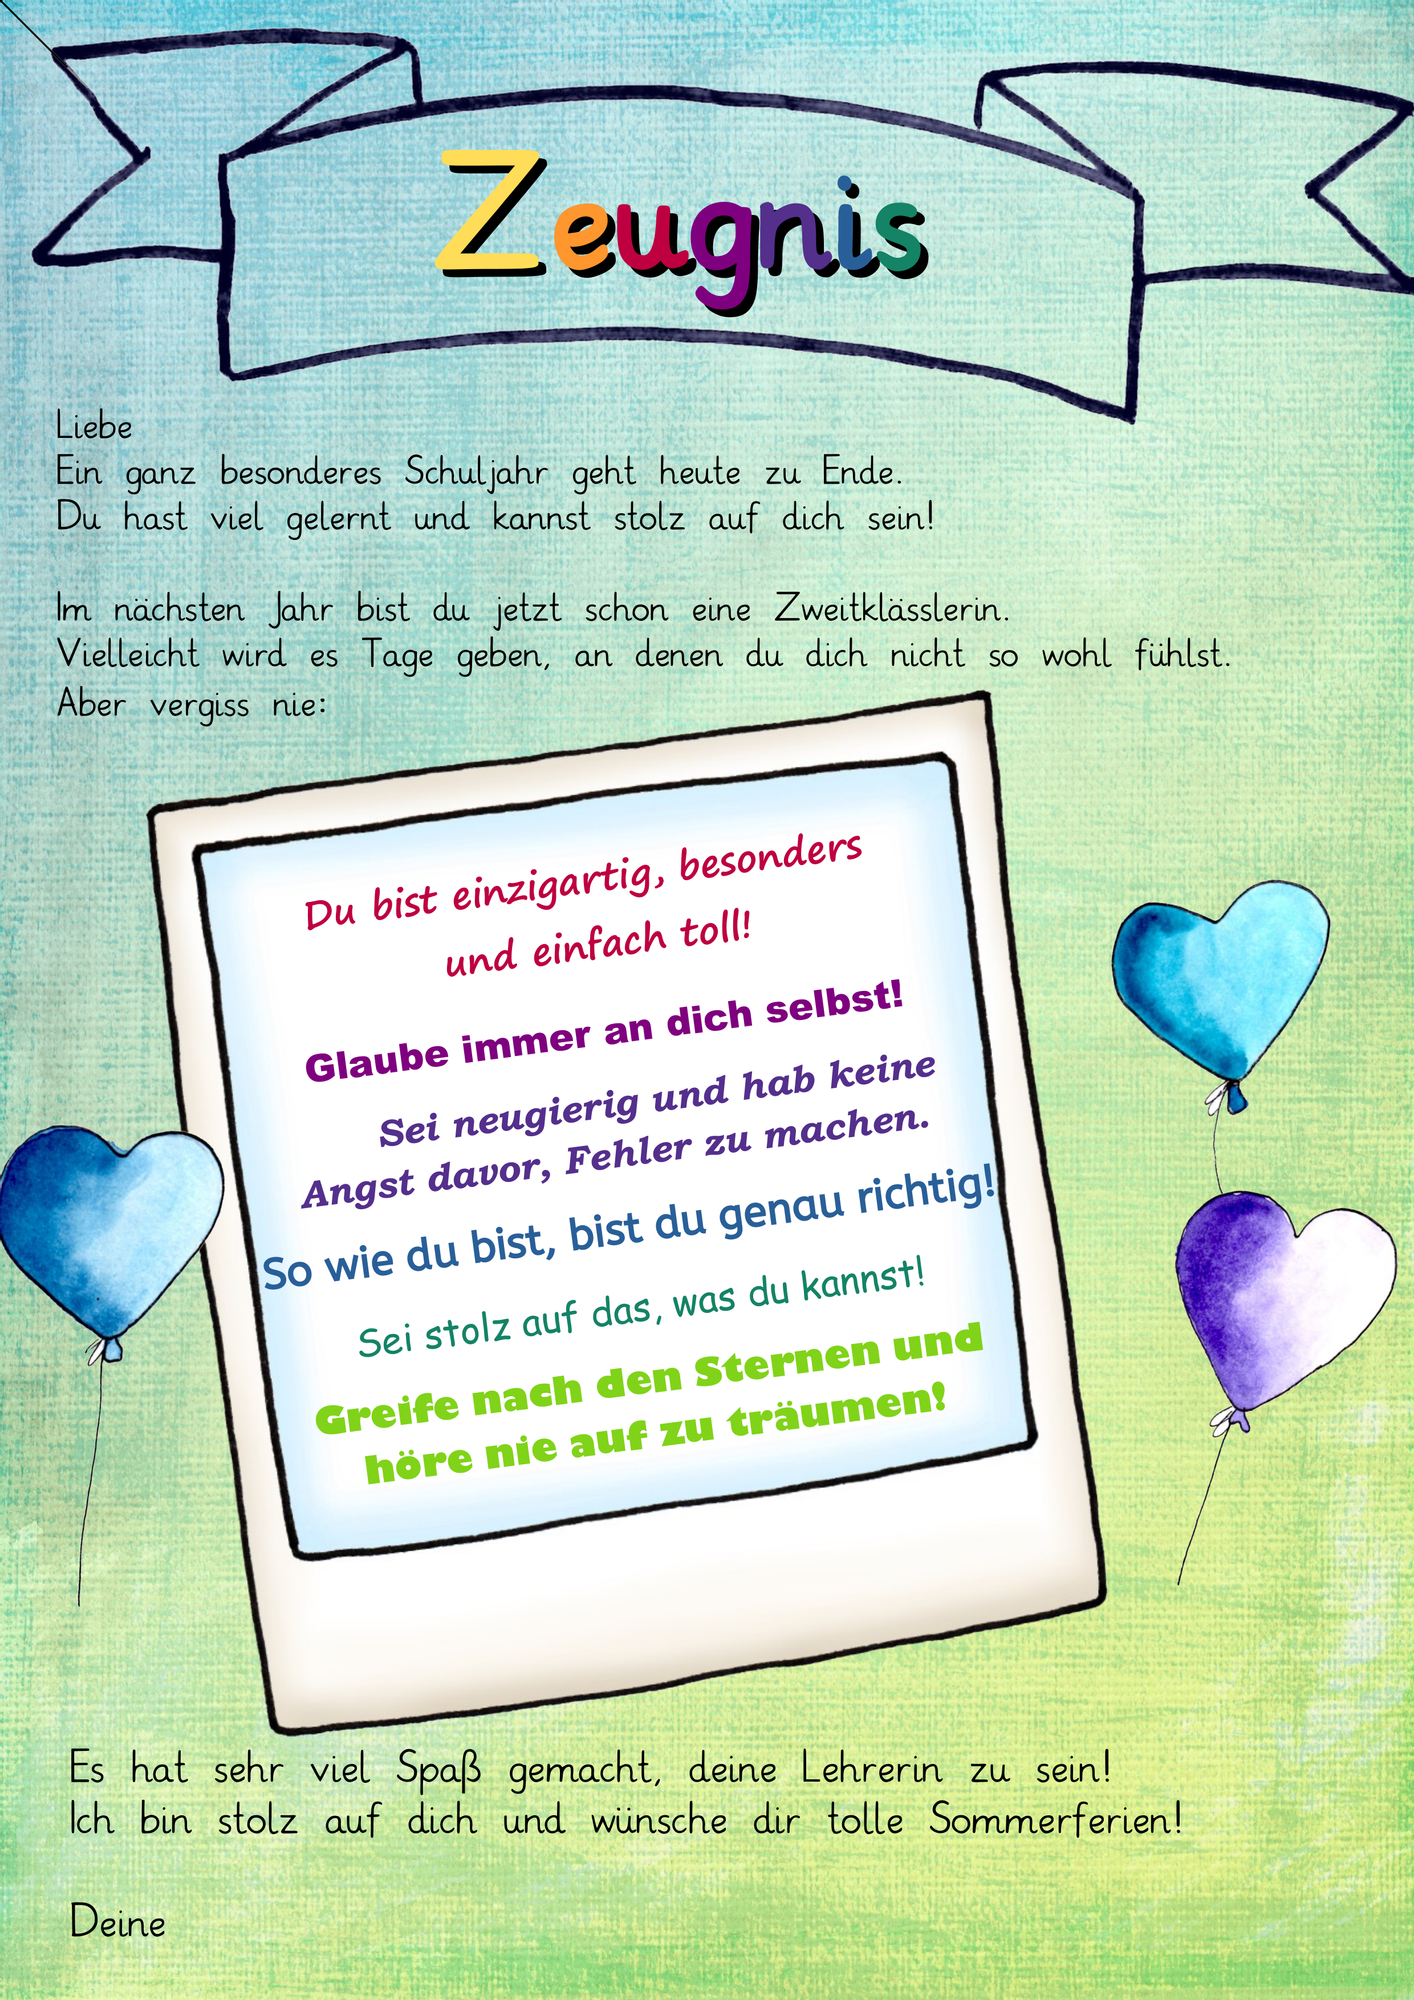 Zeugnis
Liebe
Ein ganz besonderes Schuljahr geht heute zu Ende.
Du hast viel gelernt und kannst stolz auf dich sein!
Im nächsten Jahr bist du jetzt schon eine Zweitklässlerin.
Vielleicht wird es Tage geben, an denen du dich nicht so wohl fühlst.
Aber vergiss nie:
Du bist einzigartig, besonders
und einfach toll!
Glaube immer an dich selbst!
Sei neugierig und hab keine
Angst davor, Fehler zu machen.
So wie du bist, bist du genau richtig!
Sei stolz auf das, was du kannst!
Greife nach den Sternen und
höre nie auf zu träumen!
Es hat sehr viel Spaß gemacht, deine Lehrerin zu sein!
Ich bin stolz auf dich und wünsche dir tolle Sommerferien!
Deine